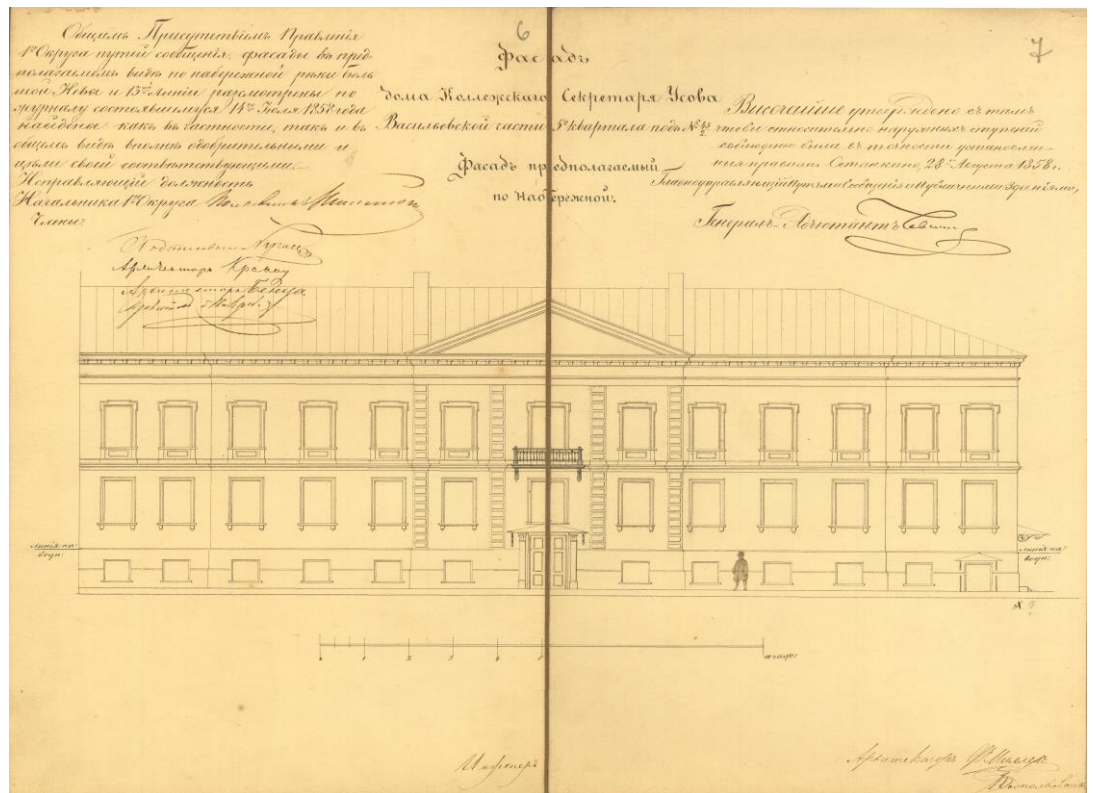 6
7
Общимъ Присутствіемъ Правленія
1го Округа путей сообщенія, фасады въ пред-
полагаемомъ видѣ по набережной рѣки Боль
шой Невы и 13й линіи разсмотрѣны по
журналу состоявшемуся 14го Іюля 1858 года
найдены какъ въ частности, такъ и въ
общемъ видѣ вполнѣ одобрительными и
цѣли своей соотвѣтствующими.
Исправляющій должность
Начальника 1го Округа
Члены:
Архитекторъ
Архитекторъ
Фасадъ
дома Коллежскаго Секретаря Усова
Васильевской части 5го квартала подъ №
Фасадъ предполагаемый
по Набережной.
Высочайше утверждено съ тѣмъ
чтобы относительно наружныхъ ступеней
соблюдено было въ точности установлен-
ныя правила. Останкино, 28го Августа 1858 г.
Главноуправляющій Путями Сообщенія и Публичными Зданіями,
Генералъ-Адъютантъ
линія на-
водн:
линія на-
водн:
1
2
3
4
5
10 саж:
Инженеръ
Архитекторъ